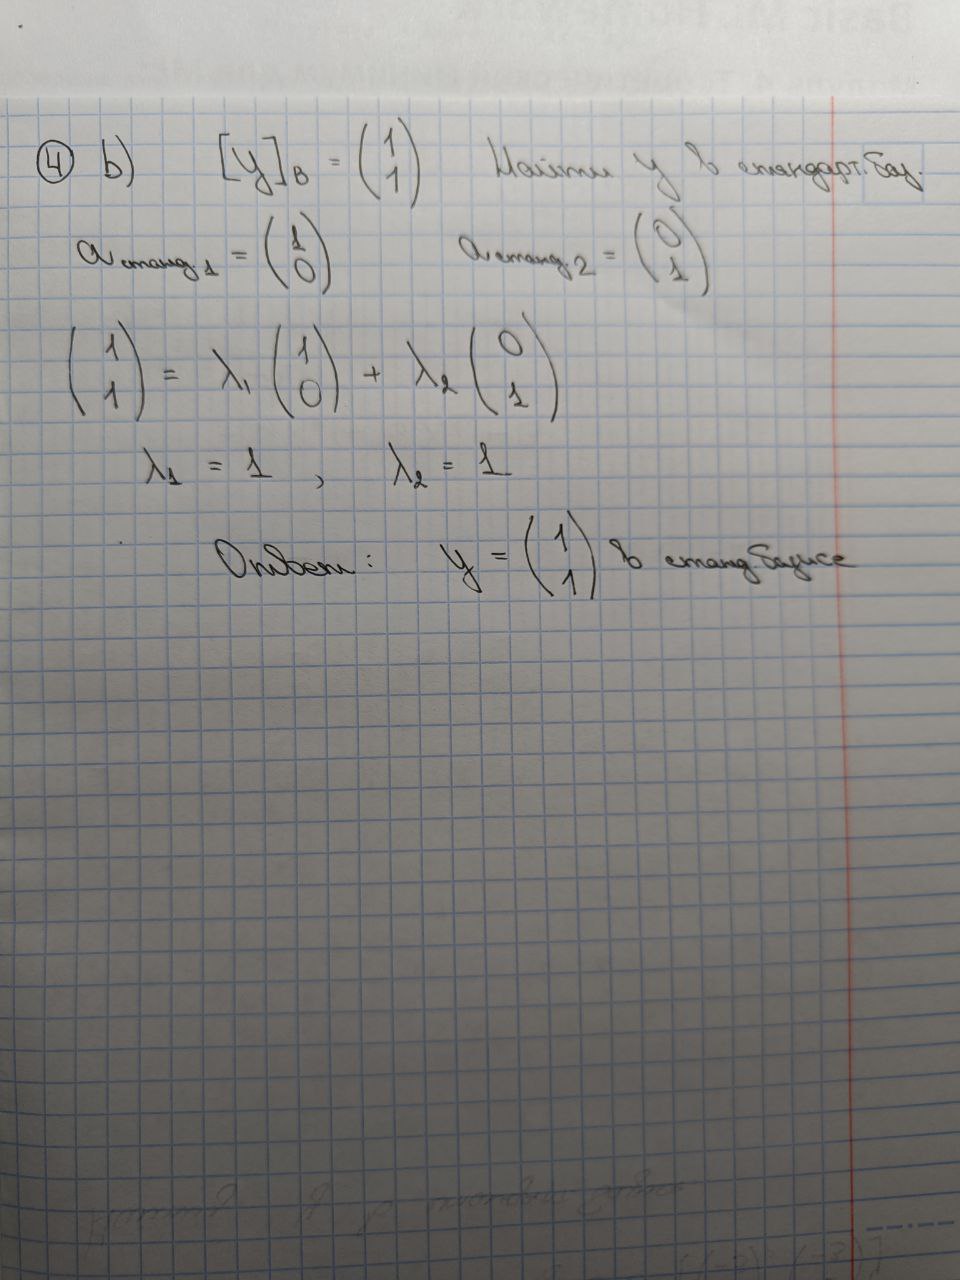 ④ b) [y]_B = (1 1) Найти y в стандарт. баз.
a станд.1 = (1 0) a станд.2 = (0 1)
(1 1) = λ₁ (1 0) + λ₂ (0 1)
λ₁ = 1 , λ₂ = 1
Ответ: y = (1 1) в станд. базисе